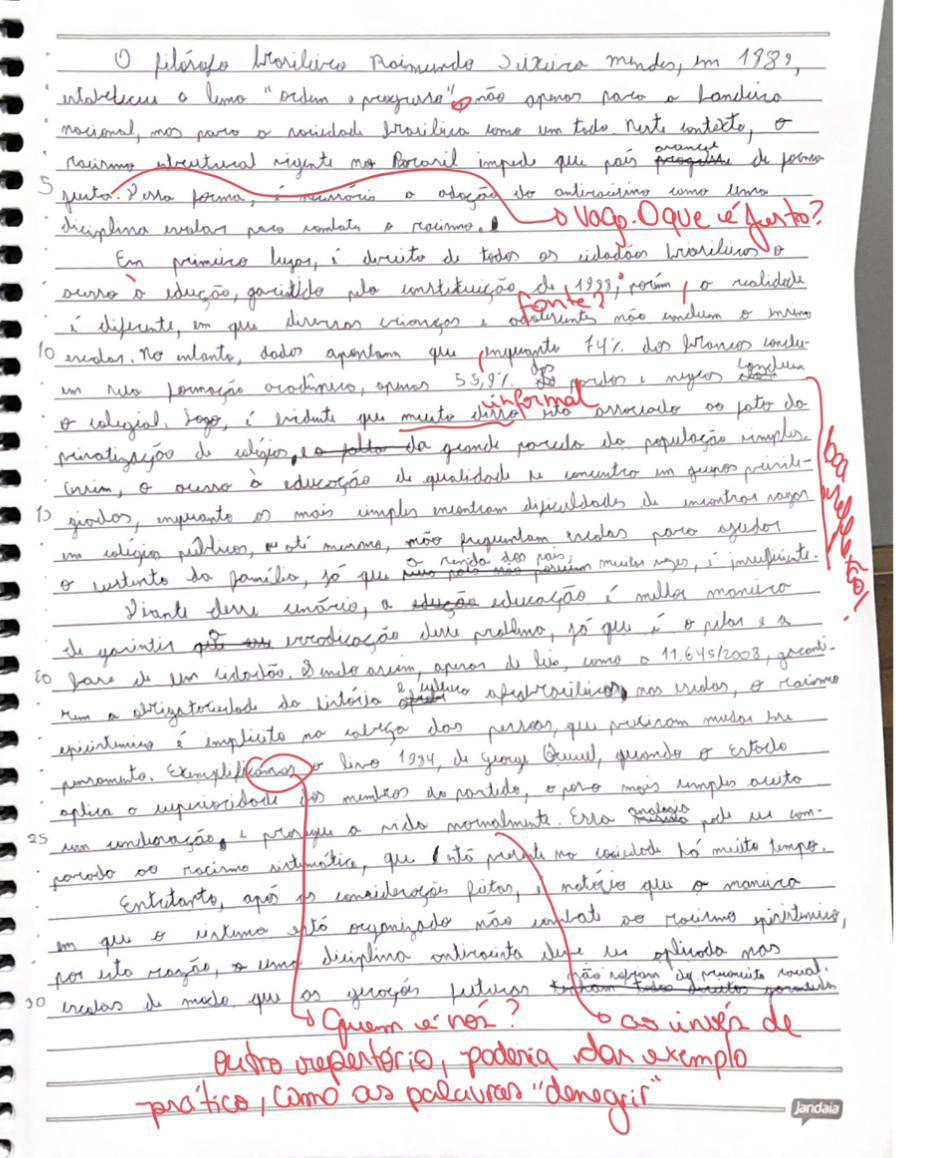 O filósofo brasileiro Raimundo Teixeira mendes, em 1989,
estabeleceu o lema "ordem e progresso" não apenas para a bandeira
nacional, mas para a sociedade brasileira como um todo. Neste contexto, o
racismo estrutural vigente no Brasil impede que país avançe progresse de forma
5 justa. Dessa forma, é necessário a adoção do antiracismo como uma
disciplina escolar para combater o racismo.
Vago. O que é justo?
Em primeiro lugar, é direito de todos os cidadãos brasileiros o
acesso à edução, garantido pela constituição de 1988; porém, a realidade
fonte?
é diferente, em que diversas crianças e adolescentes não concluem o ensino
10 escolar. No entanto, dados apontam que enquanto 74% dos brancos conclu-
em sua formação acadêmica, apenas 55,9% dos pardos e negros concluem
informal
o colegial. Logo, é evidente que muito disso está associado ao fato da
privatização de colégios, e a falta da grande parcela da população simples.
Assim, o acesso à educação de qualidade se concentra em grupos privile-
15 giados, enquanto os mais simples encontram dificuldades de encontrar vagas
em colégios públicos, ou até mesmo, não frequentam escolas para ajudar
o sustento da família, já que a renda dos pais, muitas vezes, é insuficiente.
boa reflexão!
Diante desse cenário, a edução educação é melhor maneira
de garantir a erradicação desse problema, já que é o pilar e a
20 base de um cidadão. Sendo assim, apesar de leis, como a 11.645/2008, garanti-
rem a obrigatoriedade da história e cultura afrobrasileiras, nas escolas, o racismo
epistêmico é implícito na cabeça das pessoas, que precisam mudar esse
pensamento. Exemplificamos o livro 1984, de George Orwell, quando o Estado
aplica a superioridade dos membros do partido, o povo mais simples aceita
25 sem consideração, e prossegue a vida normalmente. Essa analogia pode ser com-
parada ao racismo sistemático, que está presente na sociedade há muito tempo.
Entretanto, após as considerações feitas, é notório que a maneira
em que o sistema está organizado não combate ao racismo epistêmico,
por esta razão, a uma disciplina antiracista deve ser aplicada nas
30 escolas de modo que as gerações futuras não sofram de preconceito racial.
tenham todos direitos garantidos
Quem é nós?
ao invés de
outro repertório, poderia dar exemplo
prático, como as palavras "denegrir"
Jandaia